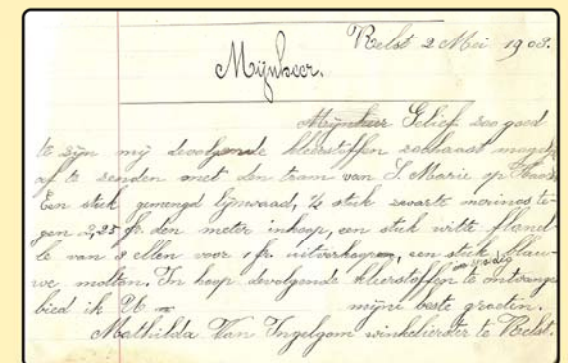 Relst 2 Mei 1908.
Mijnheer.
Mijnheer Gelief zoo goed
te zijn mij devolgende kleerstoffen zoohaast mogel
af te zenden met den tram van S. Marie op
Een stuk gemengd lijnwaad, ½ stuk zwarte morinos te-
gen 2,25 fr. den meter inkoop, een stuk witte flanel-
le van 8 ellen voor 1 fr. uitverkoopen, een stuk blau-
we molton. In hoop devolgende kleerstoffen te ontvange
bied ik U mijne beste groeten.
Mathilda Van Ingelgom winkelierster te Relst.